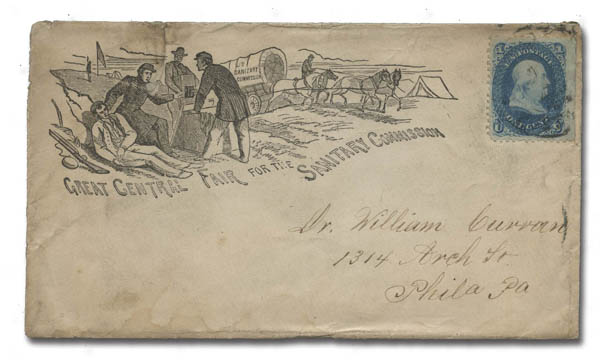 U.S. POSTAGE
ONE CENT
U.S.
SANITARY
COMMISSION
GREAT CENTRAL FAIR FOR THE SANITARY COMMISSION
Dr. William Curran
1314 Arch St
Phila Pa